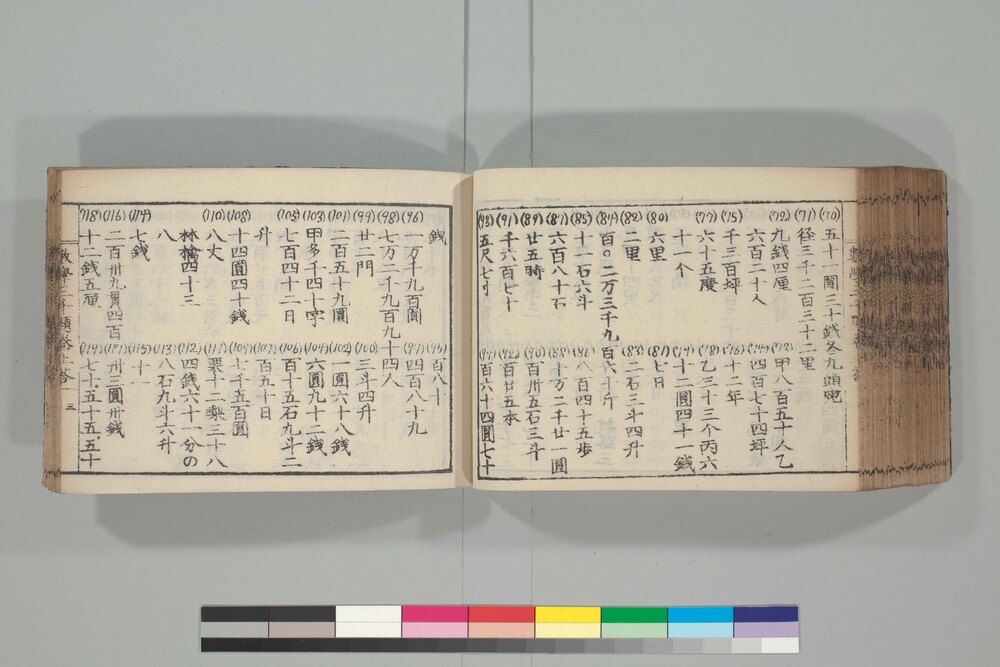 (70)
五十一圓三十錢
(71)
径三千二百三十二里
(72)
九錢四厘
(73)
甲八百五十人乙
六百二十人
(74)
四百七十四坪
(75)
千三百坪
(76)
十二年
(77)
六十五度
(78)
乙三十三个丙六
十一个
(79)
十二圓四十一錢
(80)
六里
(81)
七日
(82)
二里
(83)
二石三斗四升
(84)
百〇二万三千九百六十斤
(85)
十一石六斗
(86)
八百四十五歩
(87)
六百八十石
(88)
十万二千廿一圓
(89)
廿五時
(90)
百卅五石三斗
(91)
千六百七十
(92)
百廿五本
(93)
五尺七寸
(94)
百六十四圓七十
錢
(95)
百八十
(96)
一万千九百圓
(97)
四百八十九
(98)
七万二千九百九十四人
(99)
廿二門
(100)
三斗四升
(101)
二百五十九圓
(102)
一圓六十八錢
(103)
甲多千四十字
(104)
六圓九十二錢
(105)
七百四十二日
(106)
百十五石九斗二
升
(107)
百五十日
(108)
十四圓四十錢
(109)
七千五百圓
(110)
八丈
(111)
栗十二梨三十八
林檎四十三
(112)
四錢六十一分の
八
(113)
八石九斗六升
(114)
七錢
(115)
十一
(116)
二百卅九貫四百
(117)
卅三圓卅錢
(118)
十二錢五厘
(119)
七十五十五五十
三